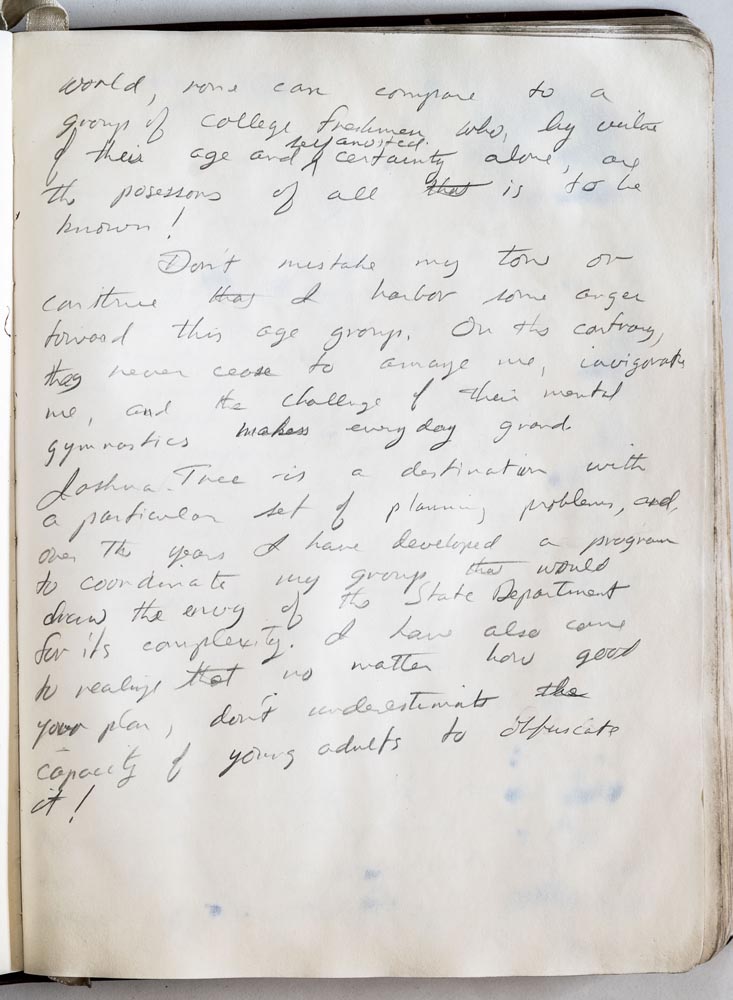 world, none can compare to a
group of college freshmen who, by virtue
self anointed
of their age and certainty alone, are
the posessors of all that is to be
known!
Don't mistake my tone or
construe that I harbor some anger
toward this age group. On the contrary,
they never cease to amaze me, invigorate
me, and the challenge of their mental
gymnastics makes everyday grand.
Joshua Tree is a destination with
a particular set of planning problems, and,
over the years I have developed a program
to coordinate my group that would
draw the envy of the State Department
for its complexity. I have also come
to realize that no matter how good
your plan, don't underestimate the
capacity of young adults to obfuscate
it!